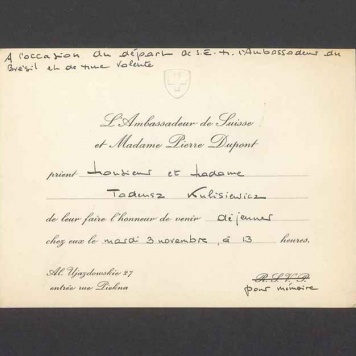 A l'occasion du départ de S.E. M. l'Ambassadeur du
Brésil et de Mme Valente
L'Ambassadeur de Suisse
et Madame Pierre Dupont
prient Monsieur et Madame
Tadeusz Kulisiewicz
de leur faire l'honneur de venir déjeuner
chez eux le mardi 3 novembre, à 13 heures.
Al. Ujazdowskie 27
entrée rue Piękna
R.S.V.P.
pour mémoire